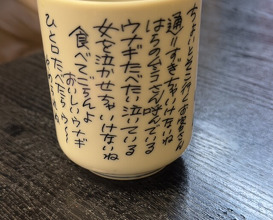 ちょいとそこ行くお客さん
通りすぎちゃいけないね
はらのそこさん呼んでいる
ウナギたべたい泣いている
女を泣かせちゃいけないね
食べてごらんよ
おいしいウナギ
ひと口たべたらウノー